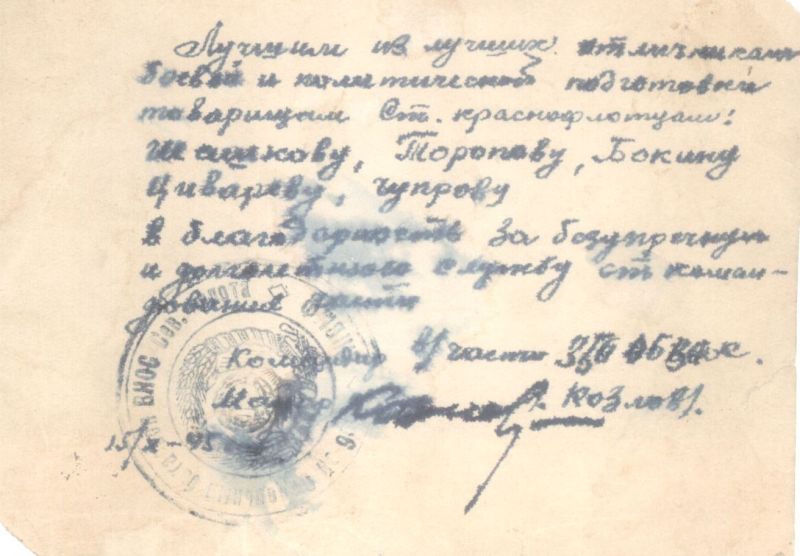 Лучшим из лучших отличникам
боевой и политической подготовки
товарищам Ст. краснофлотцам:
Шашкову, Торопову, Бокину
Цивареву, Чупрову
в благодарность за безупречную
и долголетнюю службу от коман-
дования части
Командир в/части
Майор Козлов.
15/X-45
ВНОС Сев. флота